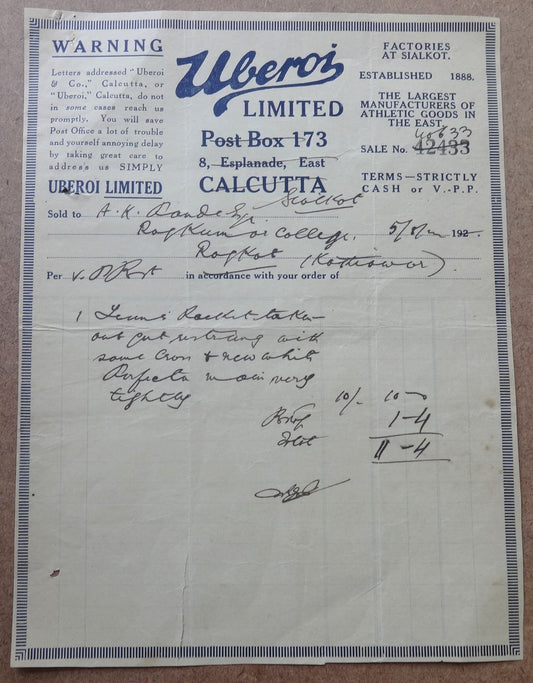 WARNING
Letters addressed "Uberoi
& Co.," Calcutta, or
"Uberoi," Calcutta, do not
in some cases reach us
promptly. You will save
Post Office a lot of trouble
and yourself annoying delay
by taking great care to
address us SIMPLY
UBEROI LIMITED
Uberoi
LIMITED
Post Box 173
8, Esplanade, East
CALCUTTA
Sialkot
FACTORIES
AT SIALKOT.
ESTABLISHED 1888.
THE LARGEST
MANUFACTURERS OF
ATHLETIC GOODS IN
THE EAST.
40633
SALE No. 42433
TERMS—STRICTLY
CASH or V.-P.P.
Sold to A. K.
Rajkumar College, 192
Rajkot (Kathiawar).
Per V. P. Post in accordance with your order of
1 Tennis Racket taken
out gut restrung with
same Cross & new white
Perfecta main very
tightly
10/- 10-0
1-4
11-4